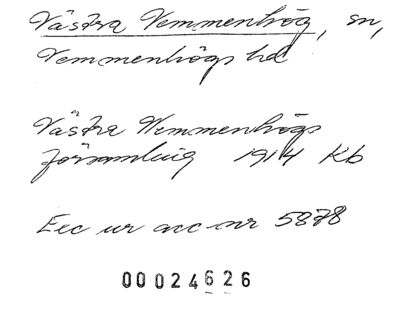 Västra Vemmenhög, sn,
Vemmenhögs hd
Västra Wemmenhögs
församling 1914 Kb
Exc ur acc nr 5878
00024626